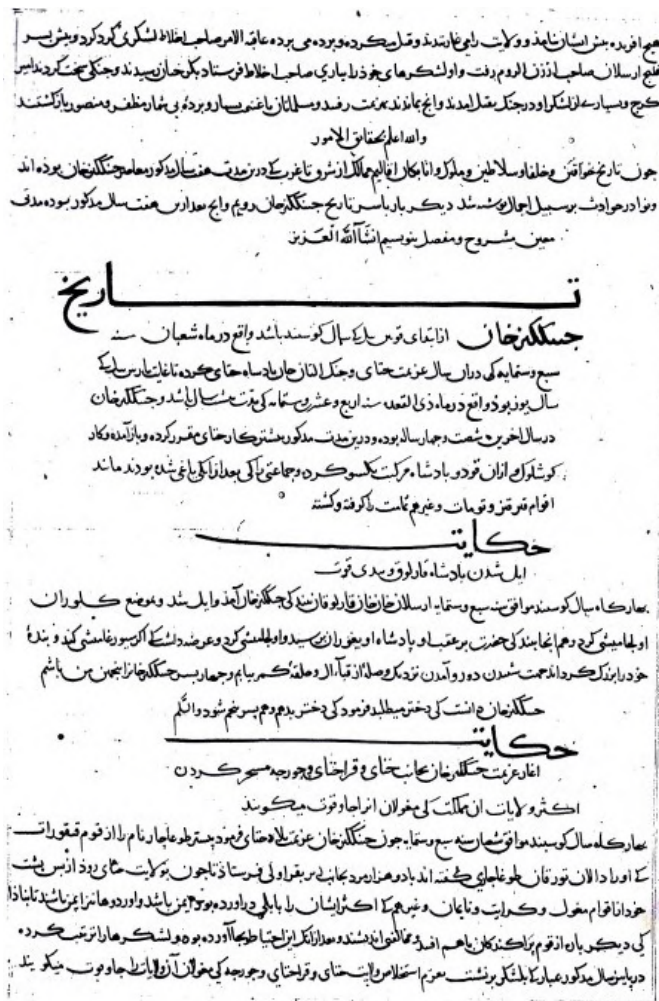 هیچ آفریده پیش ایشان نیامد و ولایات را می غارتیدند و قتل میکرد و برده می برد عاقبة الامر صاحب اخلاط لشکری کرد کرد و پیش پسر
قلیج ارسلان صاحب ارزن الروم رفت و او لشکرهای خود را بیاری صاحب اخلاط فرستاد بکرجان رسیدند و جنکی سخت کردند
کرج و بسیاری از لشکر او در جنک بقتل آمدند و آنچ بماندند بهزیمت رفتند و مسلمانان با غنیمت بسیار و برده بی شمار مظفر و منصور بازکشتند
والله اعلم بحقایق الامور
چون تاریخ خواقین و خلفا و سلاطین و ملوک و اتابکان اقالیم ممالک از شرق تا غرب که درین مدت هفت سال مذکور معاصر جینککیز خان بوده اند
و نوادر حوادث بر سبیل اجمال نوشته شد دیکر بار باسر تاریخ جینککیز خان رویم و آنچ بعد ازین هفت سال مذکور بوده مدتی
معین مشروح و مفصل بنویسیم انشاالله العزیز
تاریخ
جینککیز خان از ابتدای قوین ییل که سال کوسفند باشد واقع در ماه شعبان سنه
سبع و ستمایه که در آن سال عزیمت ختای و جنک التان خان پادشاه ختای کرده تا غایت بارس ییل که
سال یوز بوذ واقع در ماه ذی القعده سنه اربع و عشر و ستمایه که مدت هشت سال باشد و جینککیز خان
در سال آخرین شصت و چهار ساله بوده و درین مدت مذکور بیشتر کار ختای مقرر کرده و باز آمده و کار
کوشلوک و ازان قودو پادشاه مرکیت یکسو کرده و جماعتی را که بعد از ایلی یاغی شده بودند مانند
اقوام قیرقیز و تومات و غیرهم تمامت را کرفته و کشته
حکایت
ایل شدن پادشاه قارلوق و ییدی قوت
بهارکاه سال کوسفند موافق سنه سبع و ستمایه ارسلان خان خان قارلوقان بندکی جینککیز خان آمد و ایل شد و بموضع کلوران
اولجامیشی کرد و هم آنجا بندکی حضرت بر عقب او پادشاه اویغوران برسید و اولجامیشی کرد و عرضه داشت که اکر سیورغامیشی کند و بندۀ
خود را بزرک کرداند جهت شنیدن دور و آمدن نزدیک وصلۀ از قبا آل و حلقۀ کمر بیابم و چهار پسر جینککیز خانرا پنجمین من باشم
جینککیز خان دانست که دختر میطلبد فرمود که دختر بدهم و هم پسر پنجم شود والسلم
حکایت
آغاز عزیمت جینککیز خان بجانب ختای و قراختای و جورجه مسخر کردن
اکثر ولایات آن مملکت که مغولان آنرا جاوقوت میکویند
بهارکاه سال کوسفند موافق شعبان سنه سبع و ستمایه چون جینککیز خان عزیمت بلاد ختای فرمود پیشتر طوغاجار نام را از قوم قنقورات
که او را دالان تورقان طوغاجار کفته اند با دو هزار مرد بجانب غربی بقراولی فرستاد تا چون بولایت ختای روذ از پس پشت
خود از اقوام مغول و کرایت و نایمان و غیرهم که اکثر ایشان را بایلی درآورده بود ایمن باشد و اوردوها نیز ایمن باشد تا نباذا
که دیکر باره از قوم پراکندکان باهم افتند و مخالفتی اندیشند و بعد از آنک این احتیاط بجا آورده بود و لشکرها را ترتیب کرده
در پاییز سال مذکور عبارک بلشکر برنشست بعزم استخلاص ولایت ختای و قراختای و جورجه که مغولان آن ولایات را جاوقوت میکویند